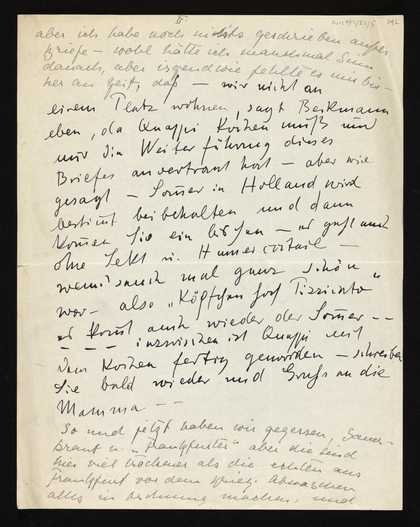 II
aber ich habe noch nichts geschrieben außer
Briefe – wohl hätte ich manchmal Sinn
danach, aber irgendwie fehlte es mir bis-
her an Zeit, daß – wir nicht an
einem Platz wohnen, sagt Beckmann
eben, da Quappi Kochen muß und
mir die Weiterführung dieses
Briefes anvertraut hat – aber wie
gesagt – Sommer in Holland wird
bestimt beibehalten und dann
Komen Sie ein bischen – es geht auch
ohne Sekt u. Humercoctail –
wenn's auch mal ganz schön
war – also „Köpfchen hoch Pizzicato"
es komt auch wieder der Somer – –
– – – inzwischen ist Quappi mit
dem Kochen fertig geworden – schreiben
Sie bald wieder und Gruß an die
Mamma – –
So und jetzt haben wir gegessen, Sauer-
kraut u. „Frankfurter" aber die sind
hier viel trockener als die echten aus
Frankfurt vor dem Krieg. Abwaschen
alles in Ordnung machen, und